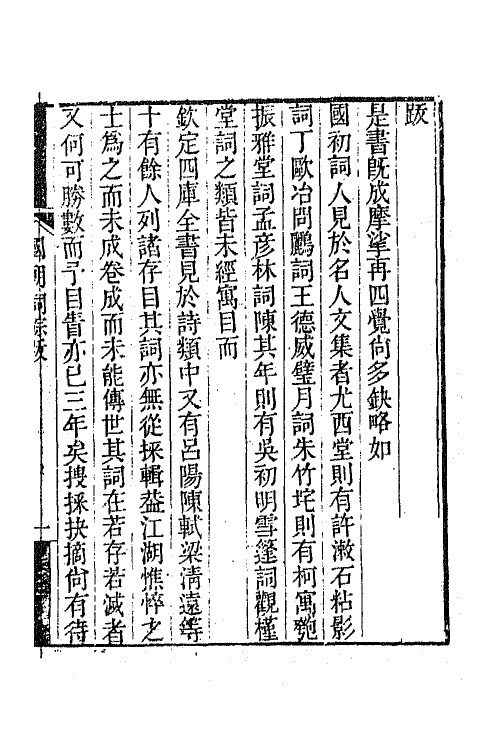 跋
是書既成摩挲再四覺尚多缺略如
國初詞人見於名人文集者尤西堂則有許漱石粘影
詞丁歐冶問鸝詞王德威璧月詞朱竹垞則有柯寓匏
振雅堂詞孟彥林詞陳其年則有吳初明雪篷詞觀槿
堂詞之類皆未經寓目而
欽定四庫全書見於詩類中又有呂陽陳軾梁清遠等
十有餘人列諸存目其詞亦無從採輯益江湖憔悴之
士為之而未成卷成而未能傳世其詞在若存若滅者
又何可勝數而予目眚亦已三年矣搜採抉摘尚有待
國朝詞綜跋
一